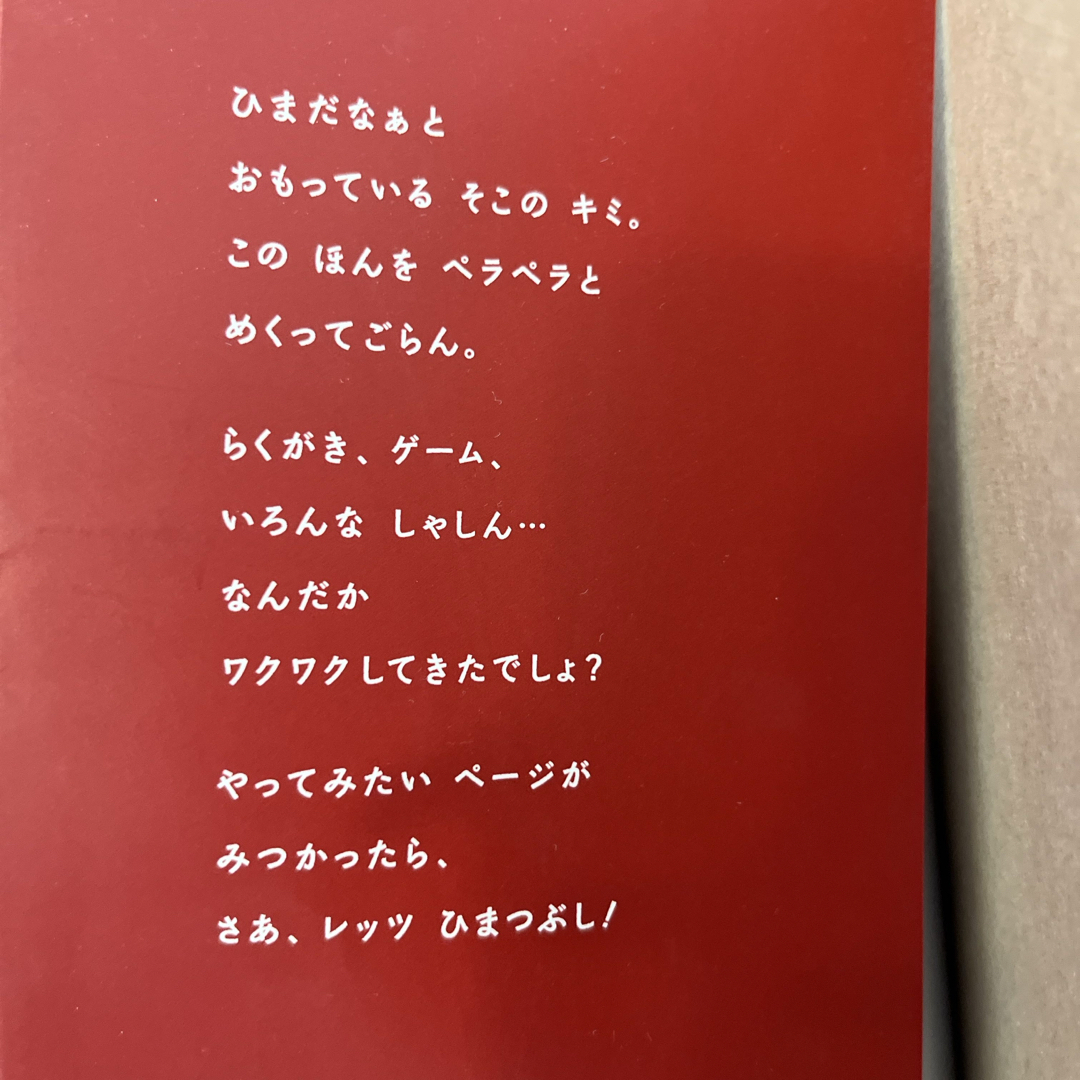 ひまだなぁと
おもっている そこの キミ。
この ほんを ペラペラと
めくってごらん。
らくがき、ゲーム、
いろんな しゃしん…
なんだか
ワクワクしてきたでしょ？
やってみたい ページが
みつかったら、
さあ、レッツ ひまつぶし！